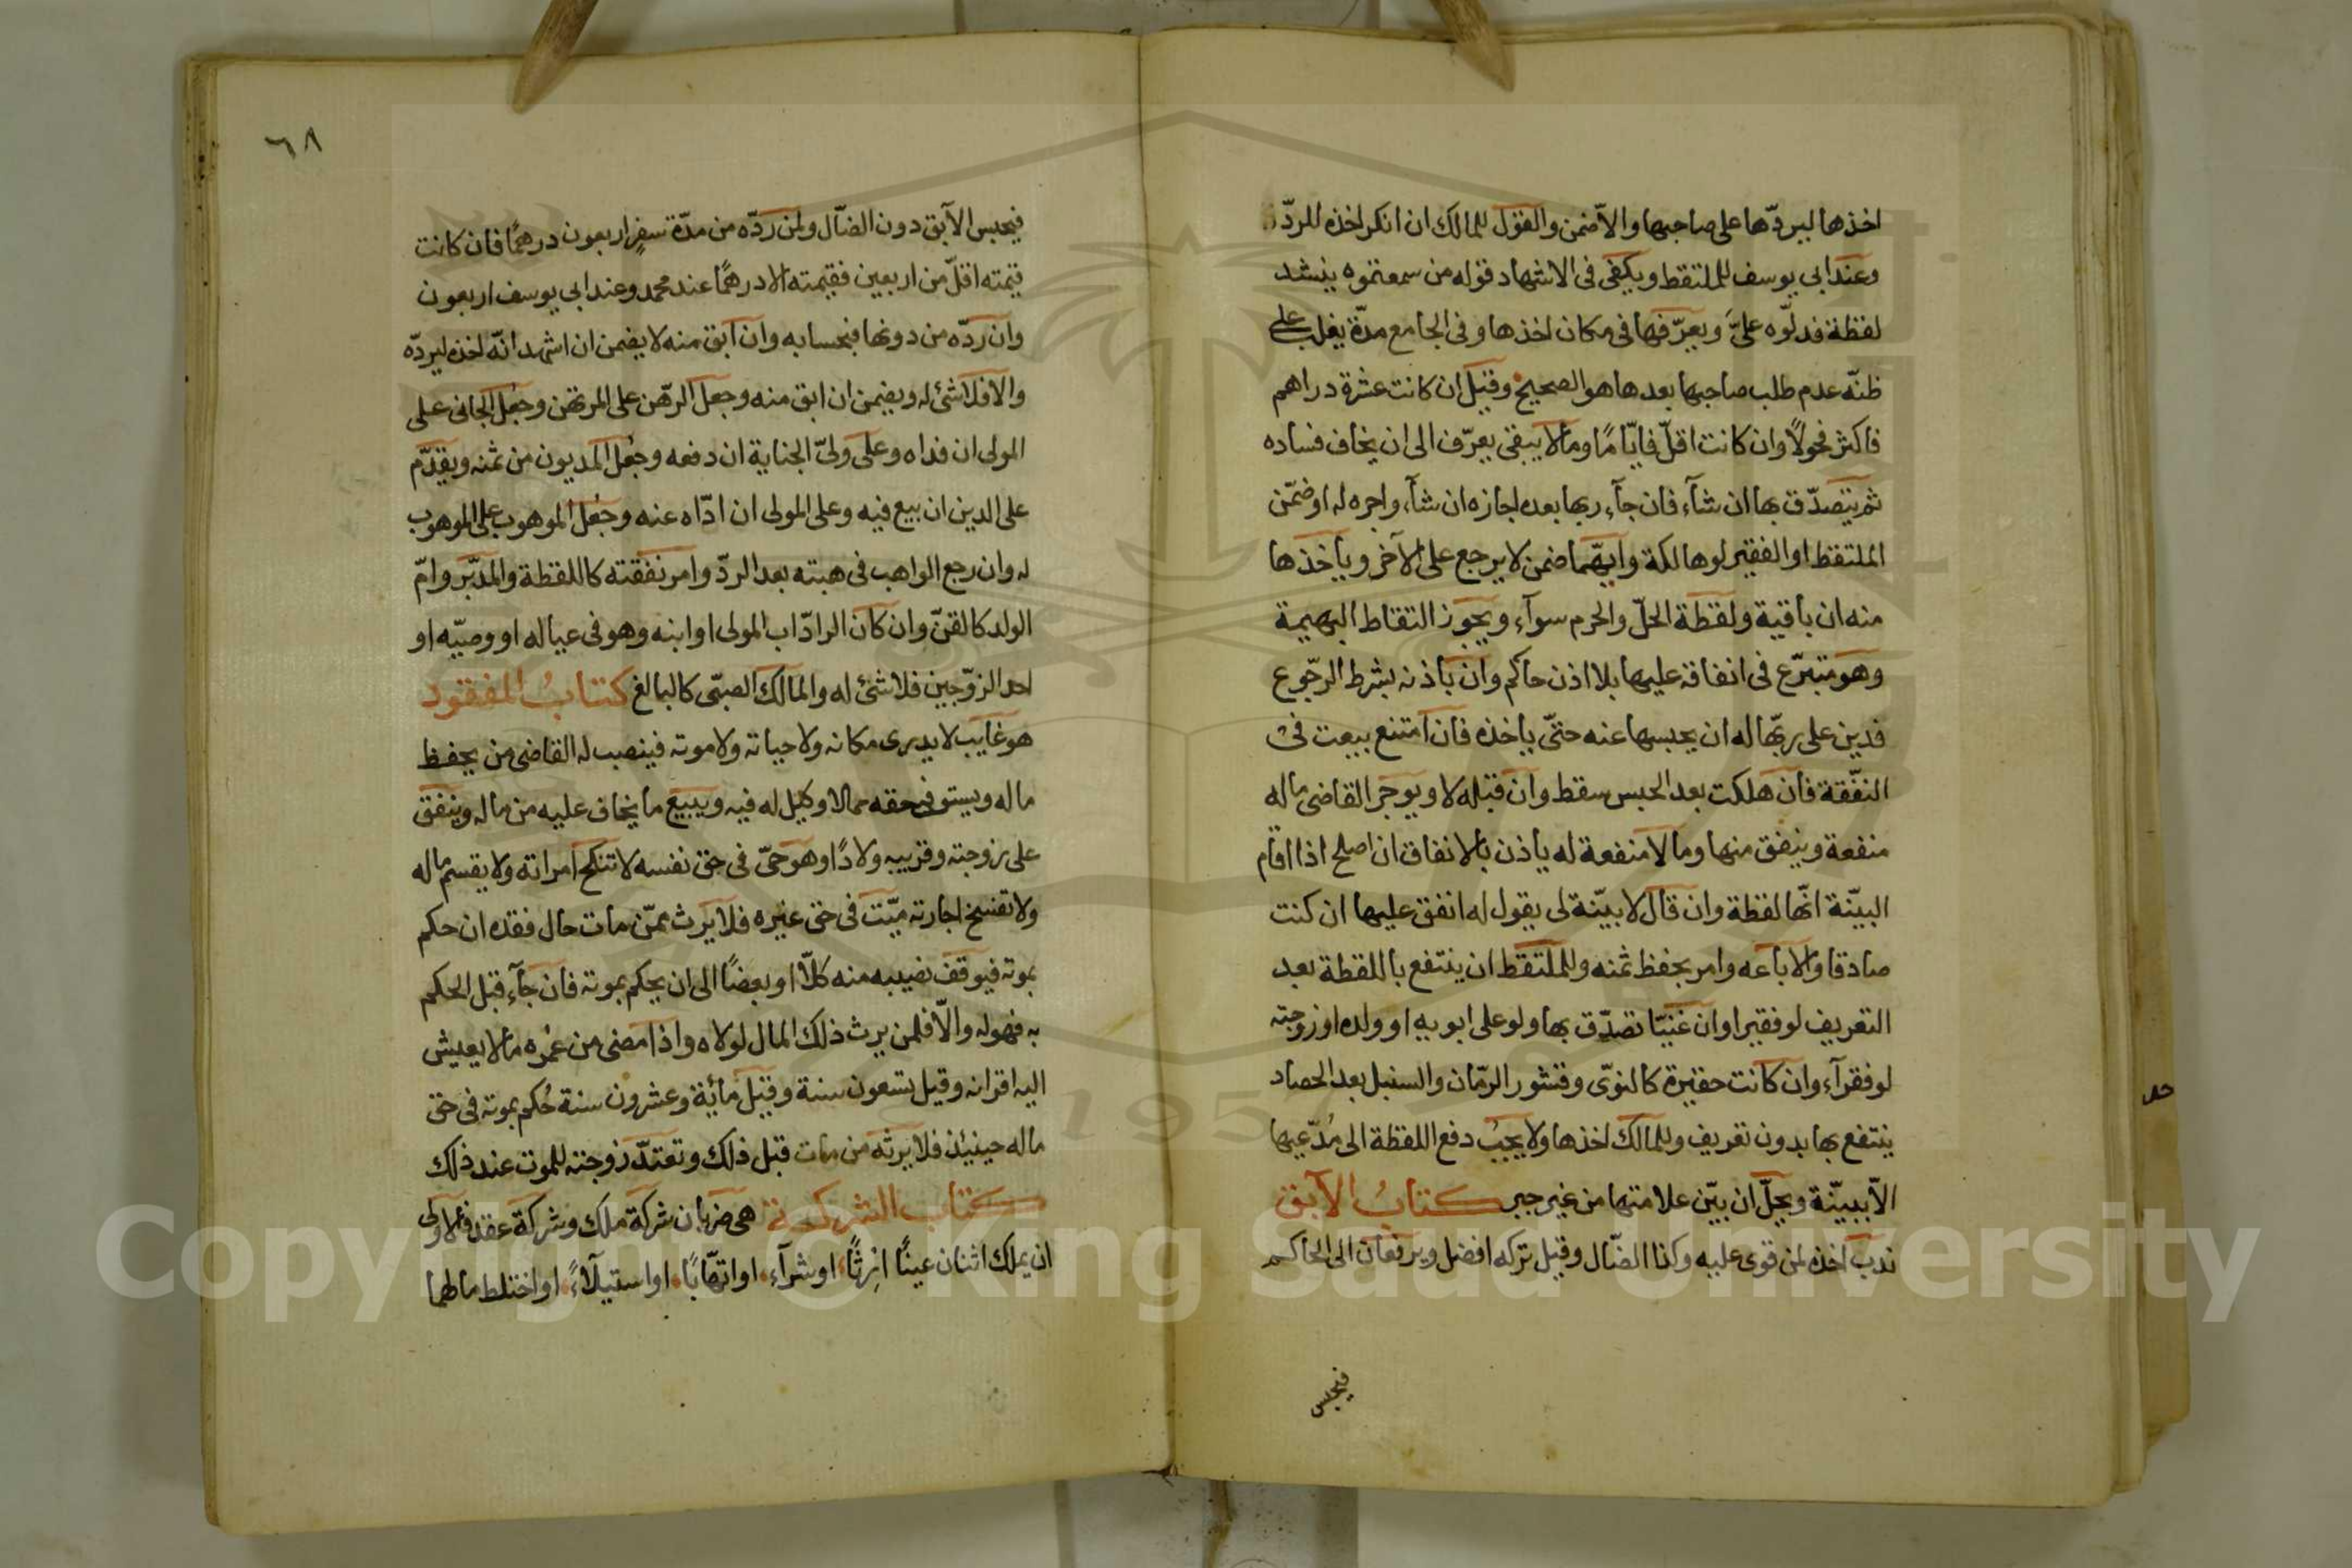 اخذها ليردّها على صاحبها والاّ ضمن والقول للمالك ان انكر اخذه للردّ
وعند ابي يوسف للملتقط ويكفى فى الاشهاد قوله من سمعتموه ينشد
لقظة فدلّوه علىَّ ويعرّفها فى مكان اخذها وفى الجامع مدّة يغلب على
ظنّه عدم طلب صاحبها بعدها هو الصحيح وقيل ان كانت عشرة دراهم
فاكثر فحولاً وان كانت اقلّ فايّامًا وما لا يبقى يعرّف الى ان يخاف فساده
ثم يتصدّق بها ان شآء فان جآء ربها بعده اجازه ان شآء واجره له او ضمّن
الملتقط او الفقير لو هالكة وايّهما ضمن لا يرجع على الآخر وياخذها
منه ان باقية ولقطة الحلّ والحرم سوآء ويجوز التقاط البهيمة
وهو متبرّع فى انفاقه عليها بلا اذن حاكم وان باذنه بشرط الرجوع
فدين على ربّها له ان يحبسها عنه حتّى ياخذه فان امتنع بيعت فى
النفّقة فان هلكت بعد الحبس سقط وان قبله لا ويوجر القاضى ماله
منفعة وينفق منها وما لا منفعة له ياذن بالانفاق ان اصلح اذا اقام
البيّنة انّها لقطة وان قال لا بيّنة لى يقول له انفق عليها ان كنت
صادقا والا باعه وامر بحفظ ثمنه وللملتقط ان ينتفع باللقطة بعد
التعريف لو فقيرا وان غنيّا تصدّق بها ولو على ابويه او ولده او زوجته
لو فقرآء وان كانت حقيرة كالنوّى وقشور الرمّان والسنبل بعد الحصاد
ينتفع بها بدون تعريف وللمالك اخذها ولا يجبُ دفع اللقطة الى مُدّعيها
الاّ ببيّنة ويحلّ ان بيّن علامتها من غير جبر كتابُ الآبق
ندب اخذه لمن قوى عليه وكذا الضّال وقيل تركه افضل ويرفعان الى الحاكم
فيحبس
٦٨
فيحبس الآبق دون الضّال ولمن ردّه من مدّة سفرٍ اربعون درهمًا فان كانت
قيمته اقلّ من اربعين فقيمته الا درهمًا عند محمد وعند ابي يوسف اربعون
وان ردّه من دونها فبحسابه وان آبق منه لا يضمن ان اشهد انّه اخذه ليردّه
والا فلا شئ له ويضمن ان ابق منه وجعل الرّهن على المرتهن وجُعل الجانى على
المولى ان فداه وعلى ولىّ الجناية ان دفعه وجُعل المديون من ثمنه ويقدّم
على الدين ان بيع فيه وعلى المولى ان ادّاه عنه وجُعل الموهوب على الموهوب
له وان رجع الواهب فى هبته بعد الردّ وامر نفقته كاللقطة والمدبّر وامّ
الولد كالقنّ وان كان الرادّ اب المولى او ابنه وهو فى عياله او وصيّه او
احد الزوّجين فلا شئ له والمالك الصبّى كالبالغ كتابُ المفقود
هو غايب لا يدرى مكانه ولا حياته ولا موته فينصب له القاضى من يحفظ
ماله ويستوفى حقه ممالا وكيل له فيه ويبيع ما يخاف عليه من ماله وينفق
على زوجته وقريبه ولادًا وهو حىّ فى حق نفسه لا تنكح امراته ولا يقسم ماله
ولا تفسخ اجارته ميّت فى حق غيره فلا يرث ممّن مات حال فقده ان حكم
بموته فيوقف نصيبه منه كلّا او بعضًا الى ان يحكم بموته فان جآء قبل الحكم
به فهو له والاّ فلمن يرث ذلك المال لولاه واذا مضى من عُمره ما لا يعيش
اليه اقرانه وقيل تسعون سنة وقيل مائة وعشرون سنة حُكم بموته فى حق
ماله حينئذ فلا يرثه من مات قبل ذلك وتعتدّ زوجته للموت عند ذلك
كتاب الشركة هى ضربان شركة ملك وشركة عقد فالاولى
ان يملك اثنان عينًا اِرثًا او شرآء او اتّهابًا او استيلآءً او اختلط مالهما
Copyright © King Saud University
1957